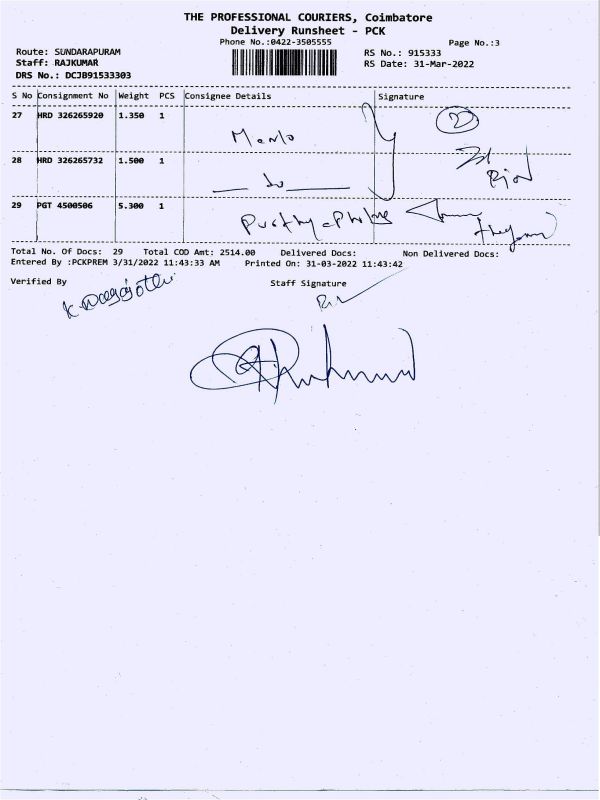 THE PROFESSIONAL COURIERS, Coimbatore
Delivery Runsheet - PCK
Phone No.:0422-3505555
Page No.:3
Route: SUNDARAPURAM
RS No.: 915333
Staff: RAJKUMAR
RS Date: 31-Mar-2022
DRS No.: DCJB91533303
S No Consignment No Weight PCS Consignee Details Signature
27 HRD 326265920 1.350 1
2
28 HRD 326265732 1.500 1
29 PGT 4500506 5.300 1
Total No. Of Docs: 29 Total COD Amt: 2514.00 Delivered Docs: Non Delivered Docs:
Entered By :PCKPREM 3/31/2022 11:43:33 AM Printed On: 31-03-2022 11:43:42
Verified By Staff Signature